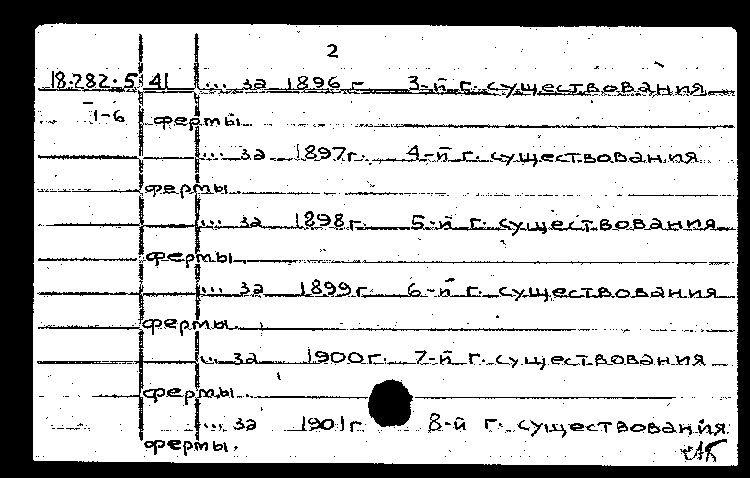 2
18.282.5 41 ... за 1896 г 3-й г. существования
1-6 фермы.
... за 1897г. 4-й г. существования
фермы.
... за 1898г. 5-й г. существования
фермы.
... за 1899г. 6-й г. существования
фермы.
... за 1900г. 7-й г. существования
фермы.
... за 1901г 8-й г. существования
фермы.